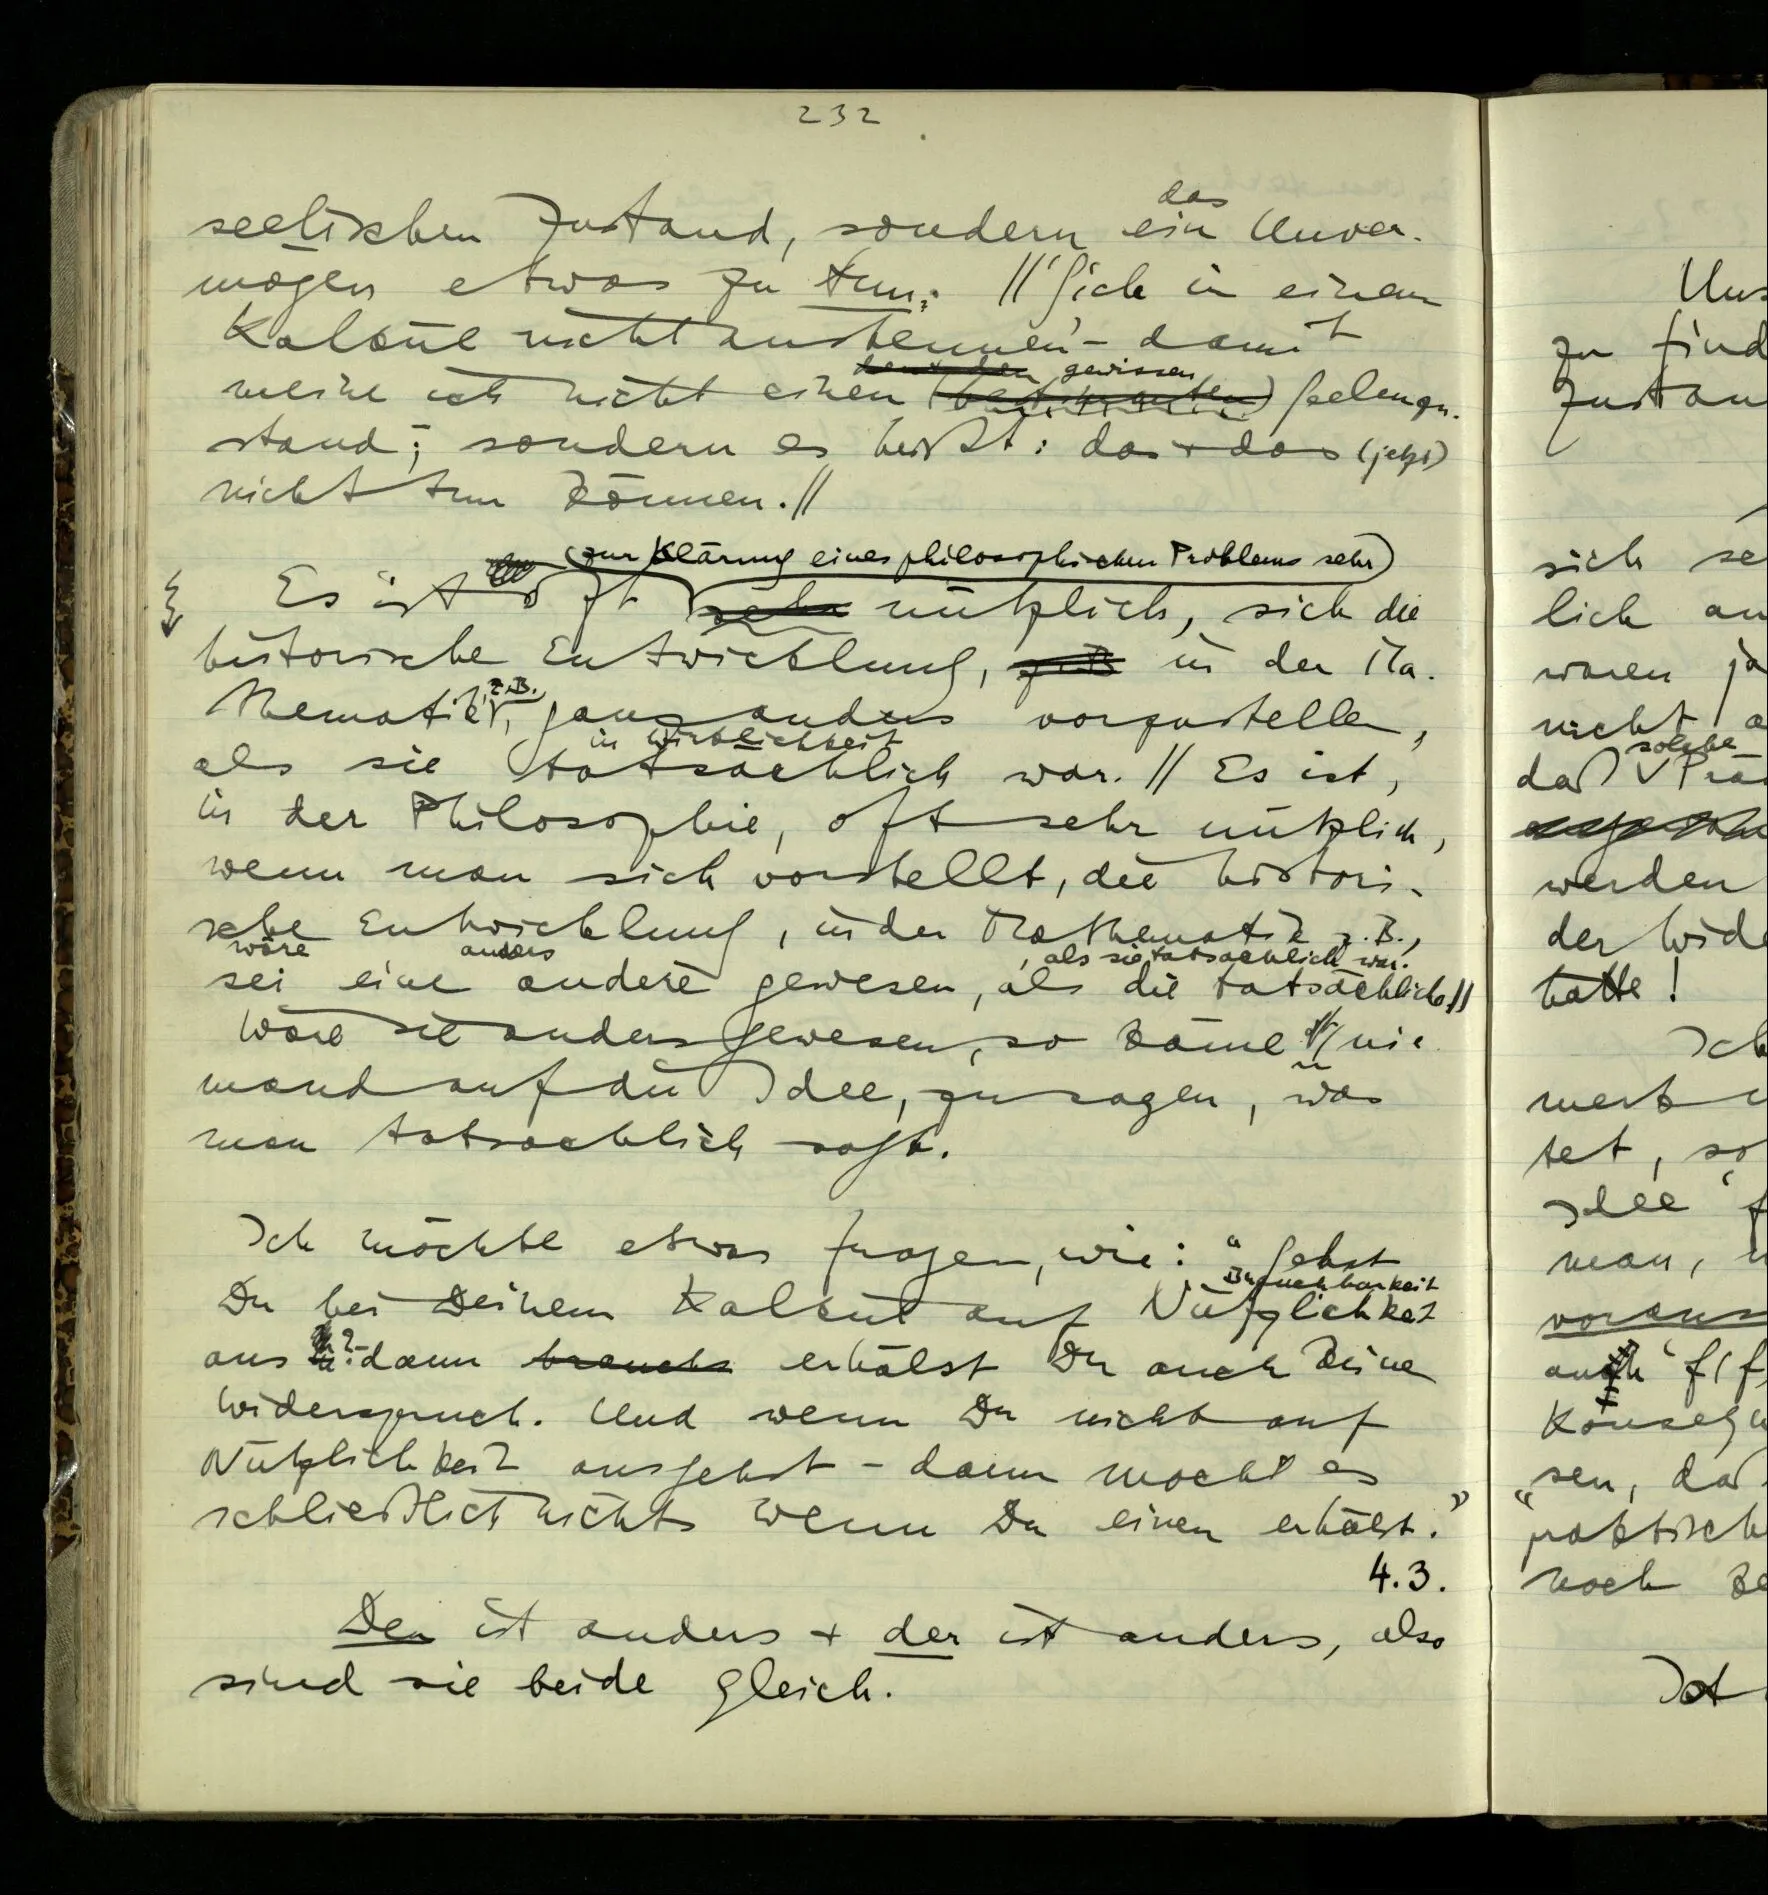 232
das
seelischen Zustand, sondern ein Unver-
mögen etwas zu tun. // ‘Sich in einem
Kalkül nicht auskennen’ – damit
gewissen
meine ich nicht einen (bestimmten) Seelenzu-
stand; sondern es heißt: das + das (jetzt)
nicht tun können. //
(zur Klärung eines philosophischen Problems sehr)
Es ist oft sehr nützlich, sich die
historische Entwicklung, z.B. in der Ma-
z.B.
thematik, ganz anders vorzustellen,
in Wirklichkeit
als sie tatsächlich war. // Es ist,
in der Philosophie, oft sehr nützlich,
wenn man sich vorstellt, die histori-
sche Entwicklung, in der Mathematik z.B.,
wäre anders , als sie tatsächlich war.
sei eine andere gewesen, als die tatsächliche. //
Wäre sie anders gewesen, so käme nie-
mand auf die Idee, zu sagen, was
man tatsächlich sagt.
Ich möchte etwas fragen, wie: “Gehst
Brauchbarkeit
Du bei Deinem Kalkül auf Nützlichkeit
aus? – dann brauchs erhälst Du auch keine
Widerspruch. Und wenn Du nicht auf
Nützlichkeit ausgehst – dann macht es
schließlich nichts wenn Du einen erhälst.”
4.3.
Der ist anders + der ist anders, also
sind sie beide gleich.
zu find
sich se
lich an
waren ja
nicht a
solche
daß
werden
der Wide
hatte!
Ich
tet, so
Idee ‘f
man, u
voraus
auch ‘f(f
Konsequ
sen, daß
“praktisch
noch ke
Ist